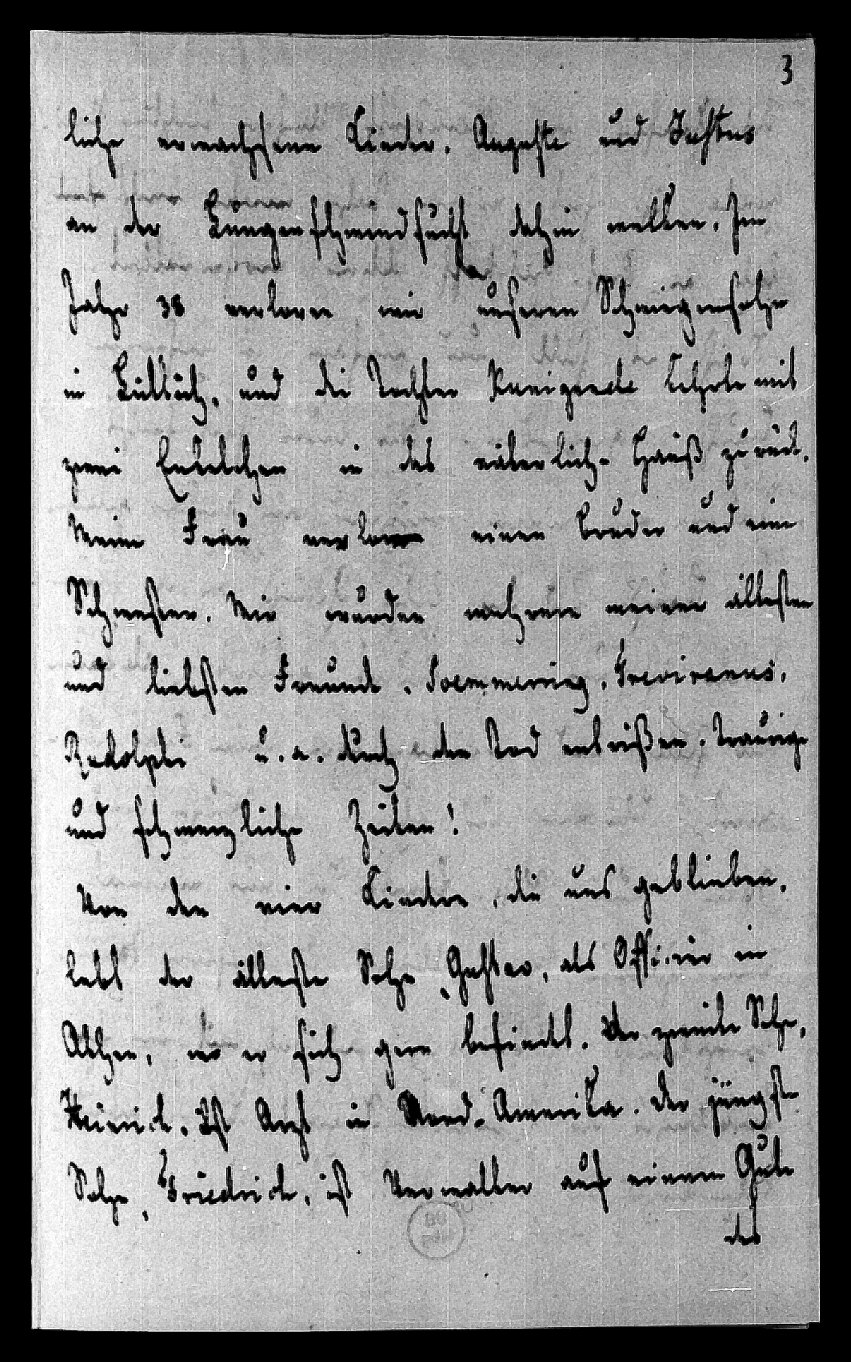 3
liche erwachsene Kinder, Auguste und Justus
an der Lungenschwindsucht dahin welken. Im
Jahr 38 verloren wir unseren Schwiegersohn
in Lüttich, und die Tochter Kunigunde kehrte mit
zwei Enkelchen in das väterliche Hauß zurück.
Meine Frau verlor einen Bruder und eine
Schwester. Mir wurden mehrere meiner ältesten
und liebsten Freunde, Soemmering, Treviranus,
Rudolphi u. a. durch den Tod entrißen. Traurige
und schmerzliche Zeiten!
Von den vier Kindern, die uns geblieben,
lebt der älteste Sohn, Gustav, als Officier in
Athen, wo er sich gern befindet. Der zweite Sohn,
Heinrich, ist Arzt in Nord-Amerika. Der jüngste
Sohn, Friedrich, ist Verwalter auf einem Gute
des